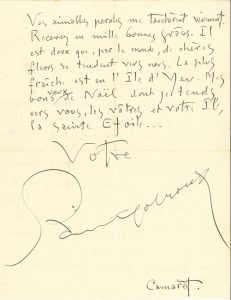 Vos aimables paroles me touchèrent vivement.
Recevez en mille bonnes grâces. Il
est doux que, par le monde, de chères
fleurs se tendent vers nous. La plus
fraîche est en l'Île d'Yeu. Mes
bons vœux de Naël dont je tends
vers vous, les vôtres et votre Île,
la sainte Etoile...
Votre
Camaret.